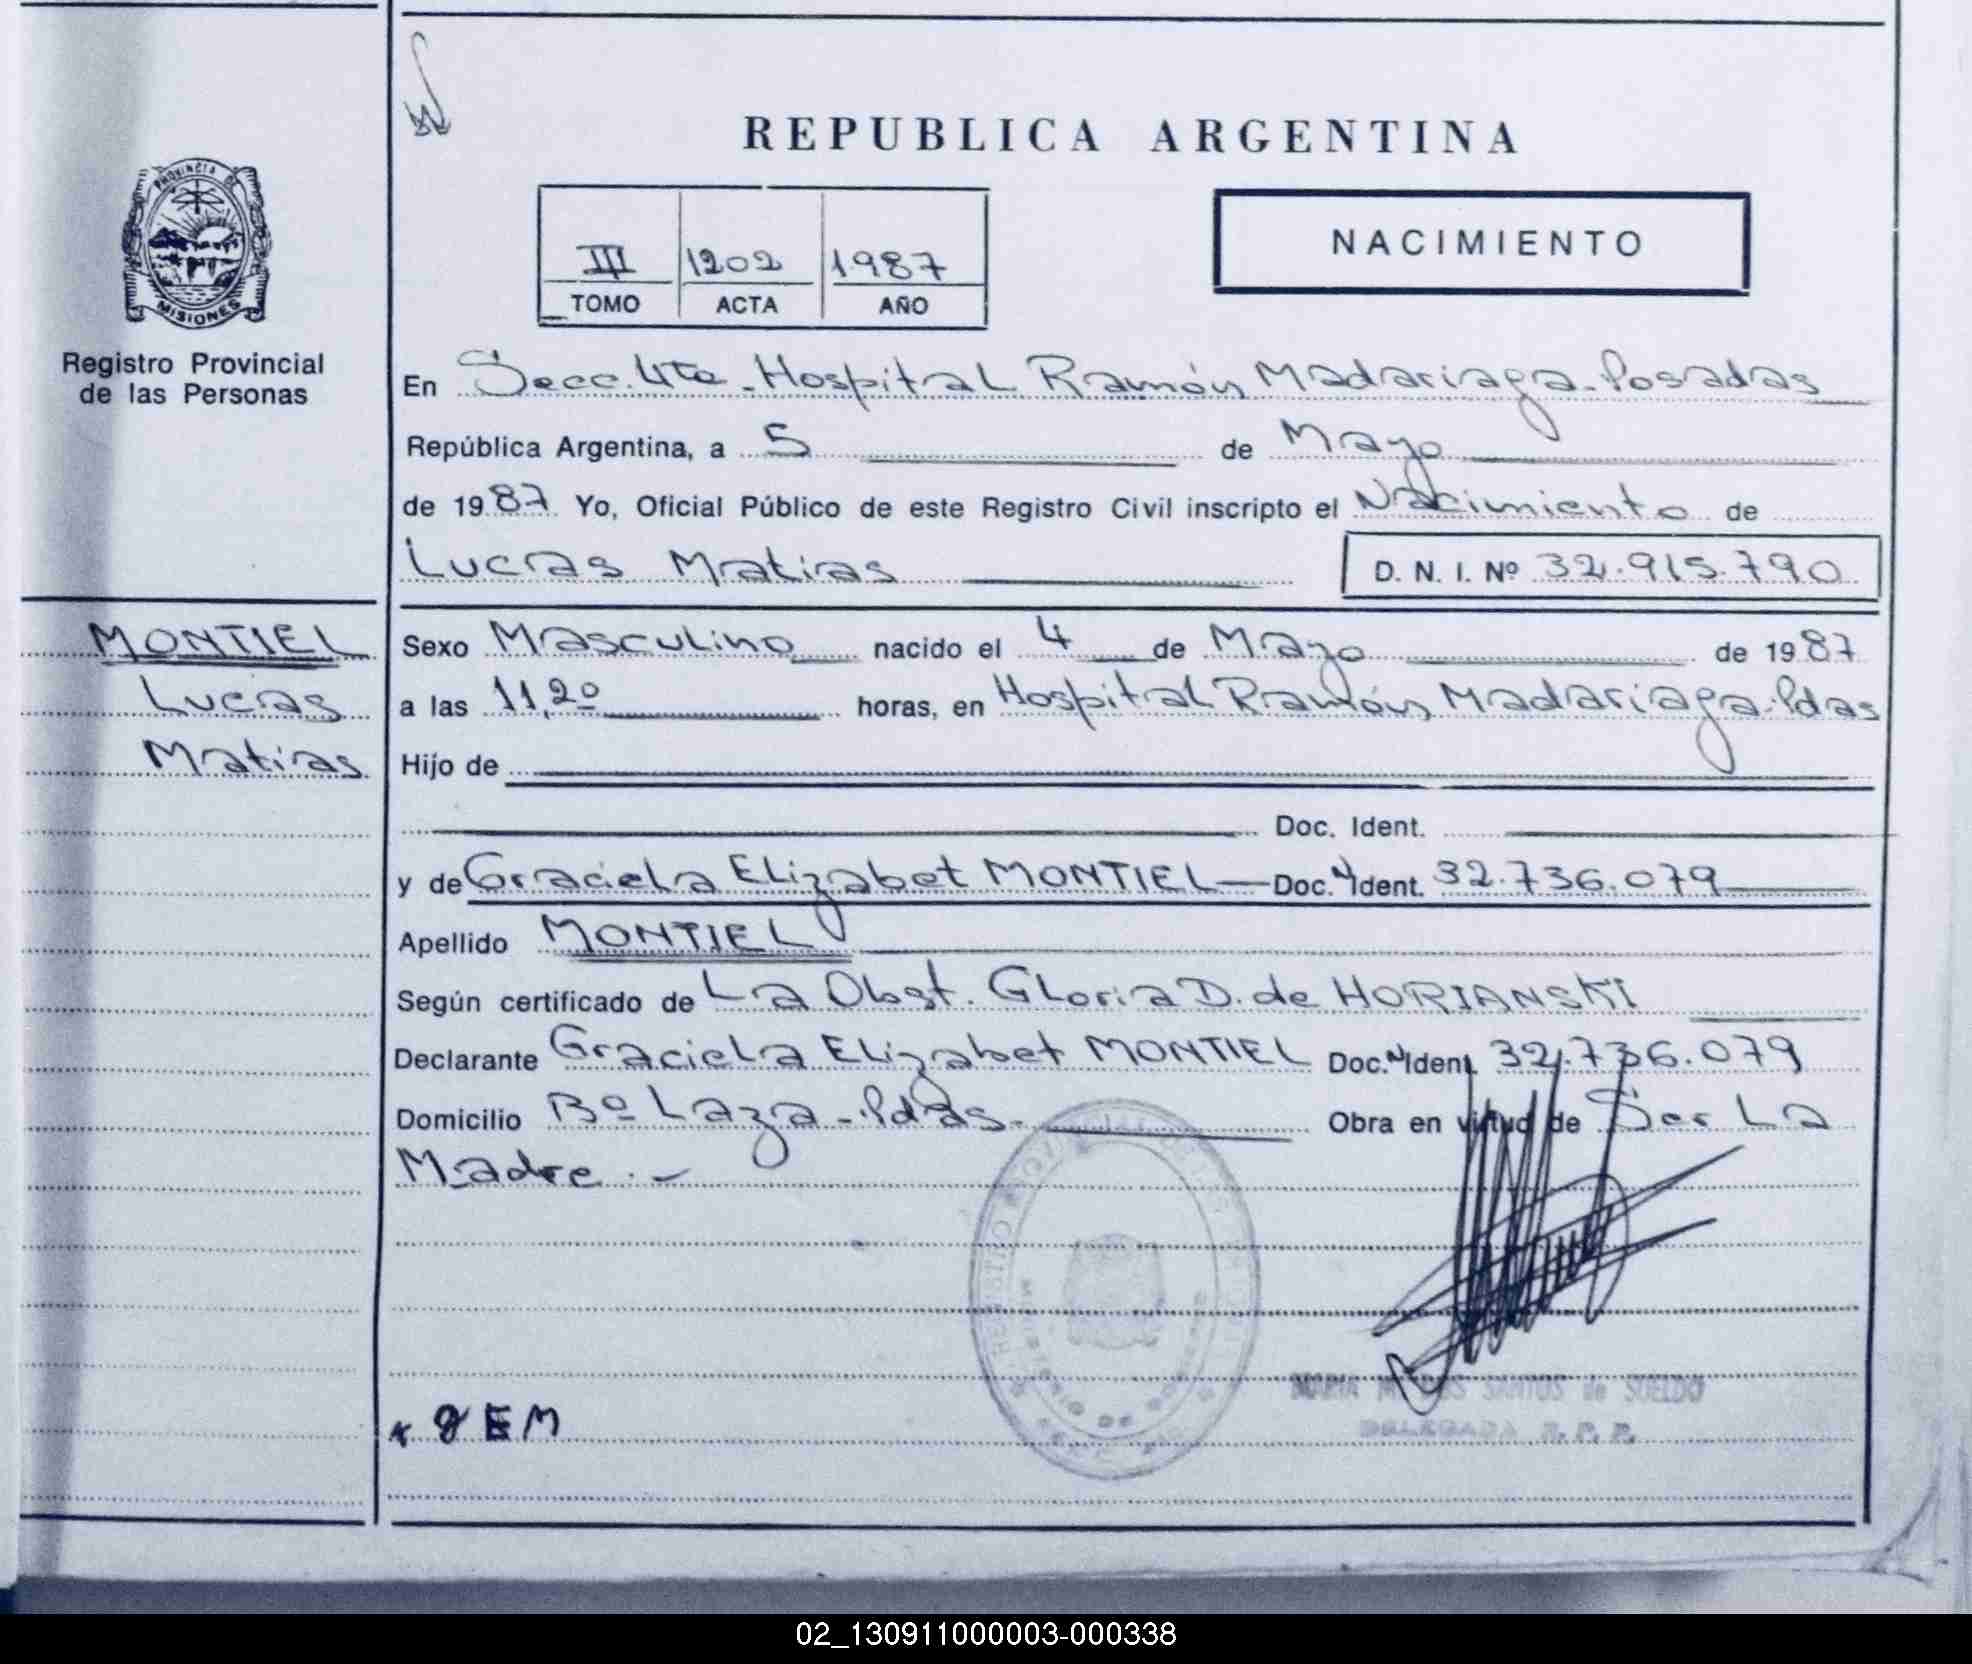 REPUBLICA ARGENTINA
NACIMIENTO
III 1202 1987
TOMO ACTA AÑO
PROVINCIA DE
MISIONES
Registro Provincial
de las Personas
En Secc. 4ta - Hospital Ramón Madariaga - Posadas
República Argentina, a 5 de Mayo
de 1987 Yo, Oficial Público de este Registro Civil inscripto el Nacimiento de
Lucas Matias D. N. I. Nº 32.915.790
MONTIEL
Lucas
Matias
Sexo Masculino nacido el 4 de Mayo de 1987
a las 11,20 horas, en Hospital Ramón Madariaga - Pdas
Hijo de
Doc. Ident.
y de Graciela Elizabet MONTIEL Doc. N Ident. 32.736.079
Apellido MONTIEL
Según certificado de La Obst. Gloria D. de HORIANSKI
Declarante Graciela Elizabet MONTIEL Doc. N Ident. 32.736.079
Domicilio Bº Laza - Pdas. Obra en virtud de Ser La
Madre. -
REGISTRO
SANTOS de SUELDO
DELEGADA R. P. P.
EM
02_130911000003-000338